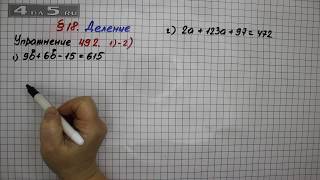 4 DA 5.RU
§18. Деление
Упражнение 492. 1)-2)
1) 9б + 6б - 15 = 615
2) 2а + 123а + 97 = 472